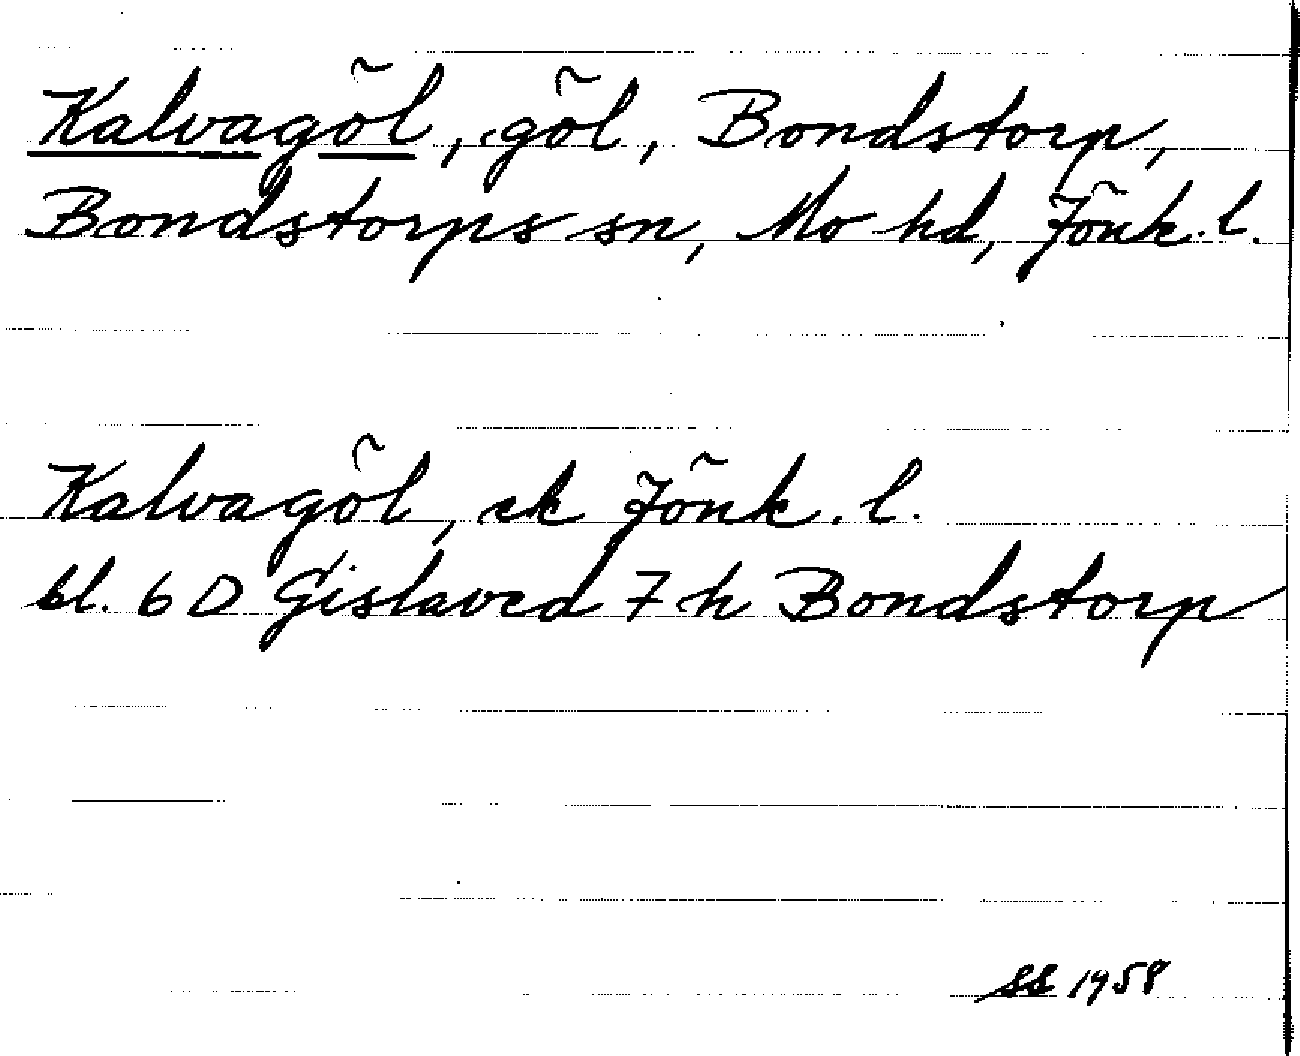 Kalvagöl, göl, Bondstorp,
Bondstorps sn, Mo hd, Jönk. l.
Kalvagöl, ek Jönk. l.
bl. 6 D Gislaved 7 h Bondstorp
SS 1958